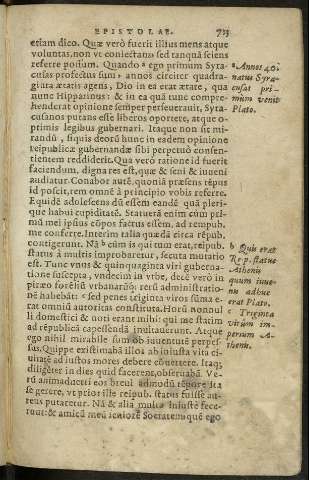 EPISTOLAE. 723
etiam dico. Quæ verò fuerit illius mens atque
voluntas, non vt coniectans, sed tanquã sciens
referre possum. Quando a ego primum Syra-
cusas profectus sum, annos circiter quadra-
ginta ætatis agens, Dio in ea erat ætate, qua
nunc Hipparinus: & in ea quã tunc compre-
henderat opinione semper perseuerauit, Syra-
cusanos putans esse liberos oportere, atque o-
primis legibus gubernari. Itaque non sit mi-
randũ, siquis deorũ hunc in eadem opinione
reipublicæ gubernandæ sibi perpetuò consen-
tientem reddiderit. Qua verò ratione id fuerit
faciendum, digna res est, quæ & seni & iuueni
audiatur. Conabor autẽ, quoniã præsens tẽpus
id poscit, rem omnẽ à principio vobis referre.
Equidẽ adolescens dũ essem eandẽ quã pleri-
que habui cupiditatẽ. Statuerã enim cùm pri-
mũ mei ipsius cõpos factus essẽm, ad rempub.
me conferre. Interim talia quædã circa rẽpub.
contigerunt. Nã b cùm is qui tum erat, reipub.
status à multis improbaretur, secuta mutatio
est. Tunc vnus & quinquaginta viri guberna-
tione suscepta, vndecim in vrbe, decẽ verò in
piræo foreliũ vrbanarũq; rerũ administratio-
nẽ habebãt: c sed penes triginta viros sũma e-
rat omniũ autoritas constituta. Horũ nonnul
li domestici & noti erant mihi: qui me statim
ad rẽpublicã capessendã inuitauerunt. Atque
ego nihil mirabile sum ob iuuentutẽ perpes-
sus. Quippe existimabã illos ab iniusta vita ci-
uitatẽ ad iustos mores debere cõuertere. Itaq;
diligẽter in dies quid facerent, obseruabã. Ve-
rũ animaduerti eos breui admodũ tẽpore ita
se gerere, vt prior ille reipub. status fuisse au-
reus putaretur. Nã & alia multa iniustè fece-
runt: & amicũ meũ seniorẽ Socratem quẽ ego
a Annos 40.
natus Syra-
cusas pri-
mùm venit
Plato.
b Quis erat
Reip. status
Athenis
quum iuue-
nis adhuc
erat Plato.
c Triginta
virûm im-
perium A-
thenis.